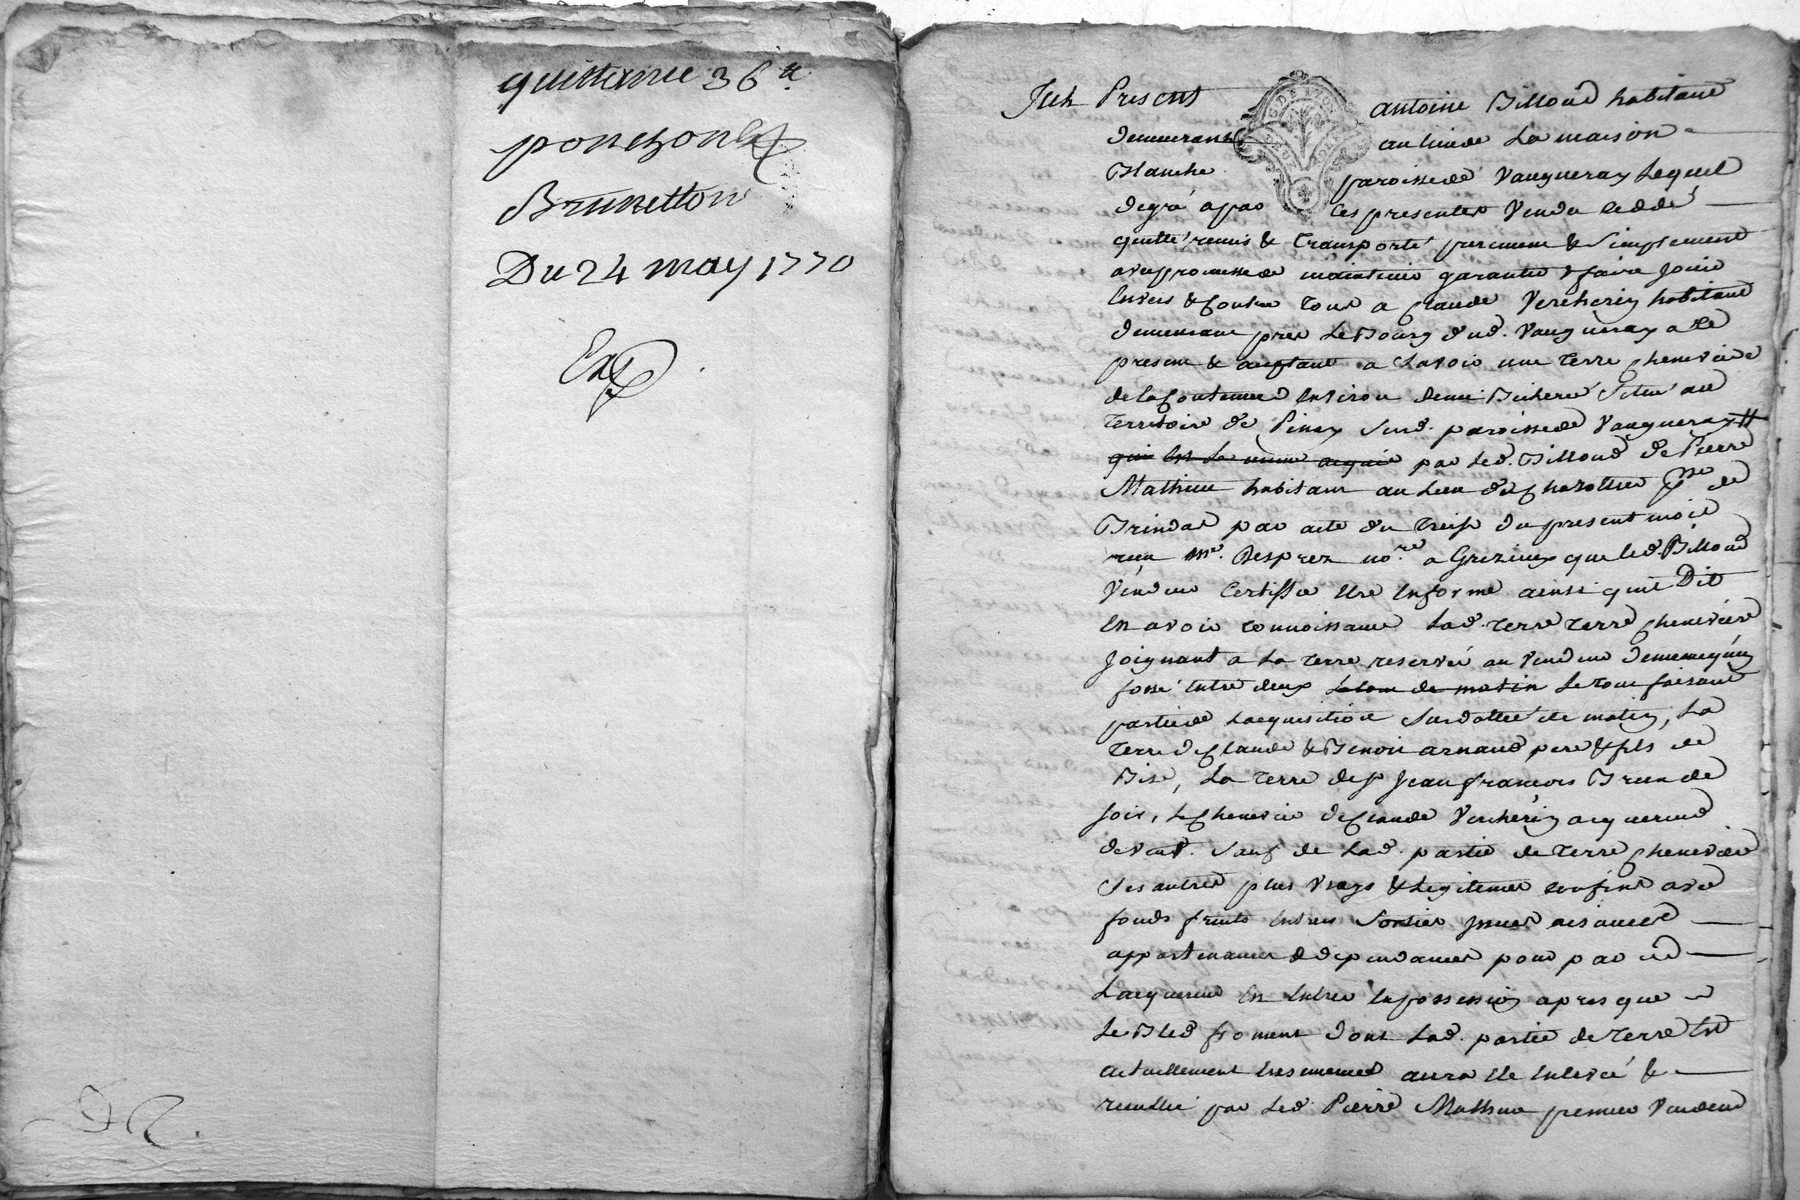 quittance 36 ₶
ponchon
Brunetton
Du 24 may 1770
Exp
Fut Present antoine Billoud habitant
demeurant au lieu de La maison
Blanche paroisse de Vaugneray Lequel
de gré a par Ces presentes Vendu cedé
quitté remis & transporté purement & Simplement
avec promesse de maintenir garantir & faire Jouir
Envers & Contre tous a Claude Vercherin habitant
demeurant pres Le Bourg dud. Vaugneray a Ce
present & acceptant a Savoir une terre cheneviere
de la Contenue Environ demi Bicheré Situé au
territoire de Pinay Sud. paroisse de Vaugneray #
qui Est La meme acquise par Led. Billoud de Pierre
Mathieu habitant au Lieu de Chazottier psse de
Brindas par acte du treize du present mois
recu Me. Desprez nore. a Grezieu que led. Billoud
Vendeur Certiffie Etre Informé ainsi quil Dit
En avoir Connoissance Lad. terre terre cheneviere
Joignant a La terre reservée au Vendeur
fossé Entre deux de matin Le tout faisant
partie de Lacquisition Surdattée de matin, La
terre de Claude & Benoit arnaud pere & fils de
Bise, La terre de Sr Jean francois Brun de
Soir, Le Chenevier de Claude Vercherin acquereur
de vent. Sauf de Lad. partie de terre cheneviere
Ses autres plus Vrays & Legitimes Confins avec
fonds fruits Entrées Sorties Issues aisances
appartenances & dependances pour par
Lacquereur En Entrer En possession apres que
Le Bled froment dont Lad. partie de terre Est
actuellement Ensemencée aura Eté Enlevé &
recuilli par Led. Pierre Mathieu premier Vendeur